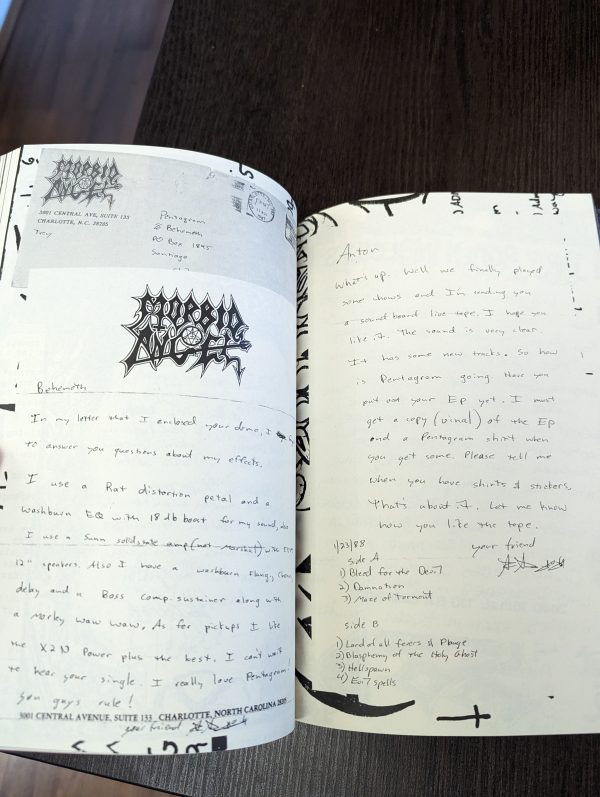 MORBID ANGEL
3001 CENTRAL AVE, SUITE 133
CHARLOTTE, N.C. 28205
Trey
Pentagram
% Behemoth
PO Box 1845
Santiago
MORBID ANGEL
Behemoth
In my letter that I enclosed your demo, I
to answer you questions about my effects.
I use a Rat distortion petal and a
Washburn EQ with 18db boost for my sound, also
I use a Sunn solidstate amp (not Marshal) with
12" speakers. Also I have a washburn Flang, Chorus,
delay and a Boss comp. sustainer along with
a Morley Waw waw, As for pickups I like
the X2N Power plus the best. I can't wait
to hear your single. I really love Pentagram!
you guys rule!
3001 CENTRAL AVENUE, SUITE 133 CHARLOTTE, NORTH CAROLINA 28205
your friend
Anton
What's up. Well we finally played
some shows and I'm sending you
a sound board live tape. I hope you
like it. The sound is very clear.
It has some new tracks. So how
is Pentagram going Have you
put out your Ep yet. I must
get a copy (vinal) of the EP
and a Pentagram shirt when
you get some. Please tell me
when you have shirts & stickers,
That's about it. Let me know
how you like the tape.
1/23/88
your friend
side A
1) Bleed for the Devil
2) Damnation
3) Maze of Torment
side B
1) Lord of all fevers & Plauge
2) Blasphemy of the Holy Ghost
3) Hellspawn
4) Evil spells